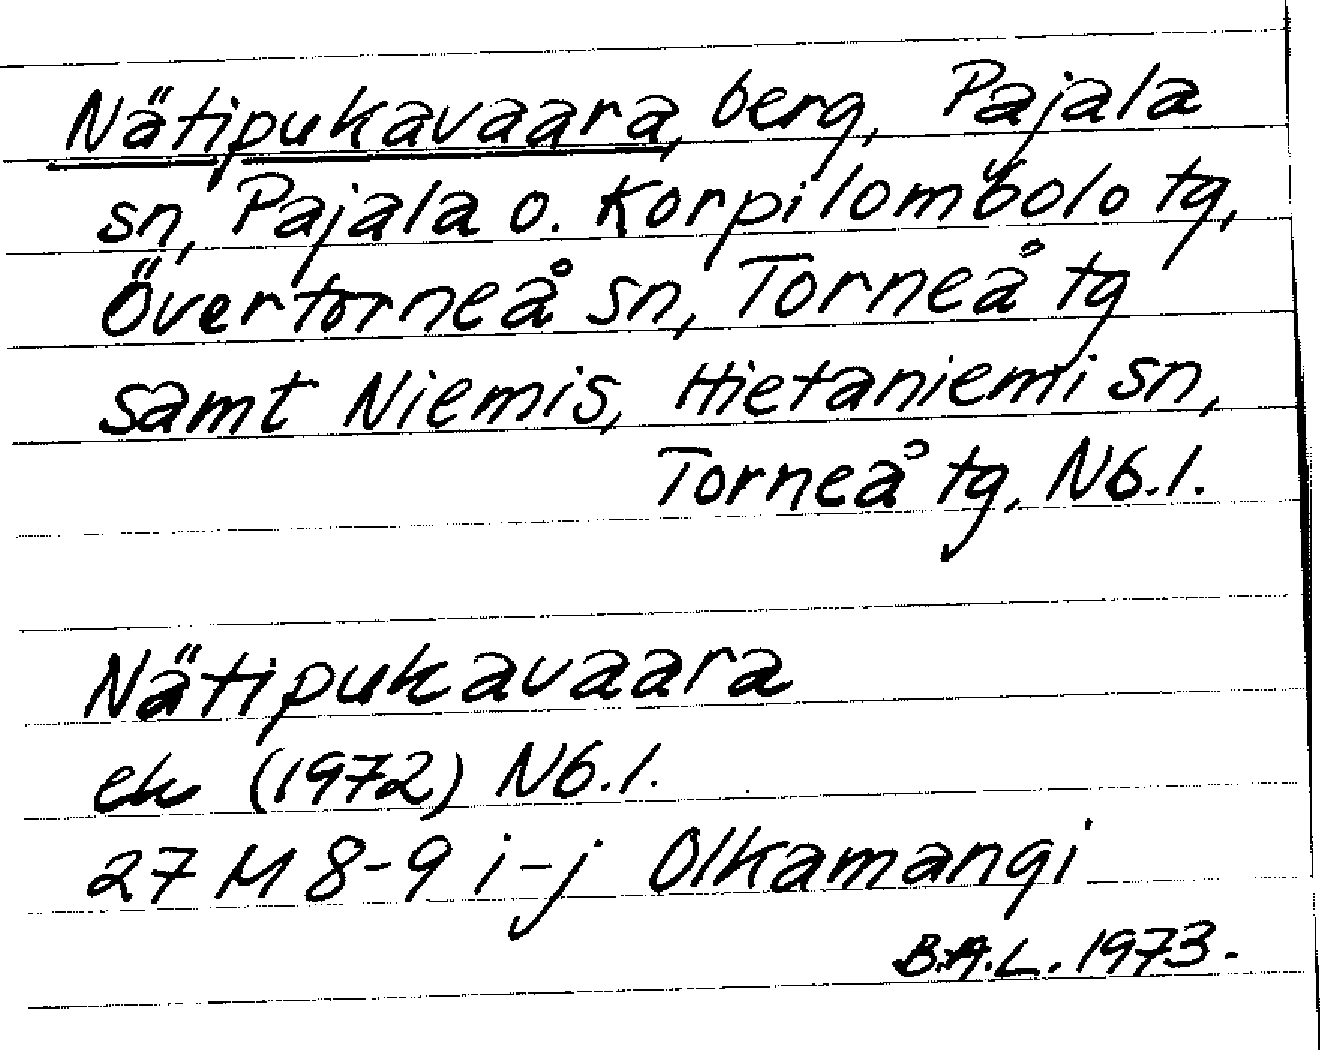 Nätipukavaara, berg, Pajala
sn, Pajala o. Korpilombolo tg,
Övertorneå sn, Torneå tg
samt Niemis, Hietaniemi sn,
Torneå tg, Nb.l.
Nätipukavaara
ek (1972) Nb.l.
27 M 8-9 i-j Olkamangi
B.A.L. 1973.